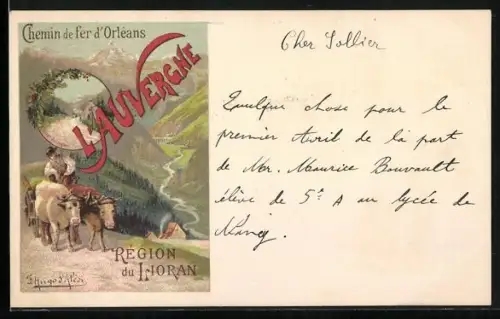 Chemin de fer d'Orléans
L'AUVERGNE
RÉGION
du LIORAN
F. Hugo d'Alési
Cher Sollier
Quelque chose pour le
premier Avril de la part
de Mr. Maurice Bouvault
élève de 5e A au lycée de
Nancy.